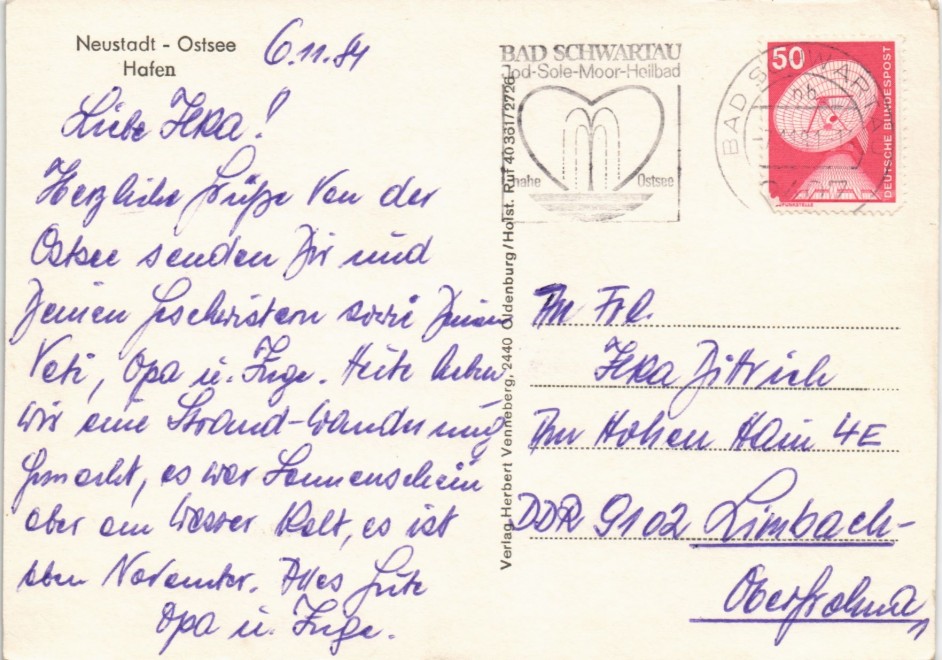 Neustadt - Ostsee
Hafen
6.11.84
Liebe Ilka!
Herzliche Grüße von der
Ostsee senden Dir und
Deinen Geschwistern sowie Deinen
Opa u. Inge. Heute haben
wir eine Strand-Wanderung
gemacht, es war Sonnenschein
aber am Wasser kalt, es ist
eben November. Alles Gute
Opa u. Inge.
BAD SCHWARTAU
Jod-Sole-Moor-Heilbad
nahe Ostsee
BAD SCHWARTAU
50
DEUTSCHE BUNDESPOST
Verlag Herbert Venneberg, 2440 Oldenburg/Holst. Ruf 40361/2726
An Frl.
Ilka Dittrich
Am Hohen Hain 4E
DDR 9102 Limbach-
Oberfrohna